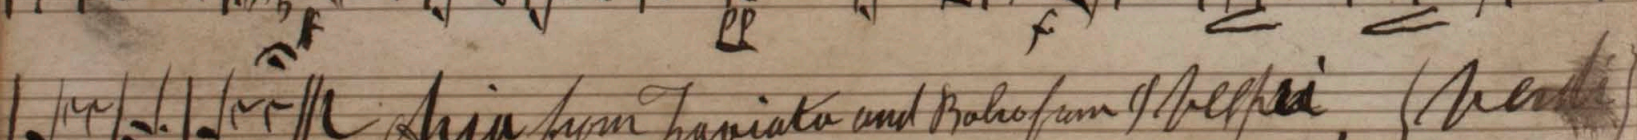 f pp f
Aria from Traviata and Bolro from I Vespri (Verdi)